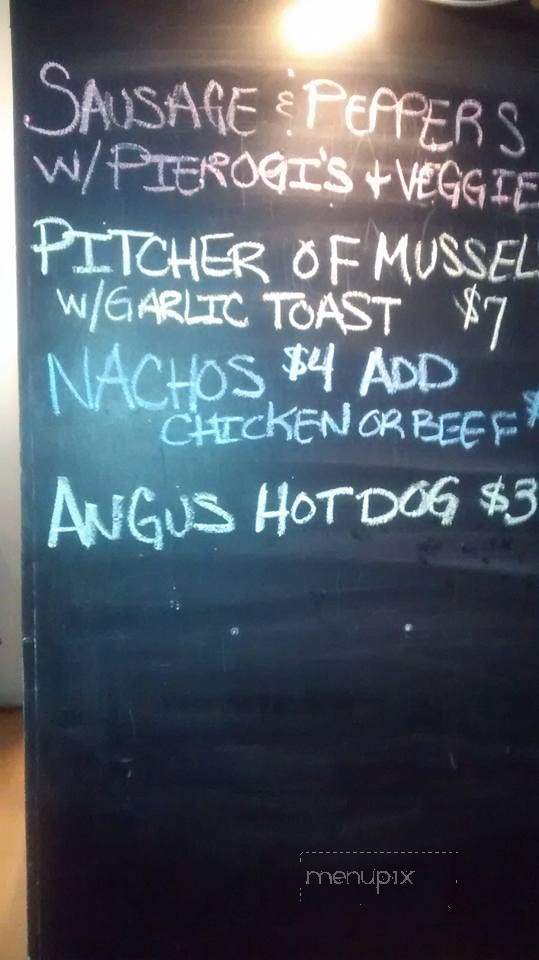 SAUSAGE & PEPPERS
W/PIEROGI'S + VEGGIE
PITCHER OF MUSSEL
W/GARLIC TOAST $7
NACHOS $4 ADD
CHICKEN OR BEEF $
ANGUS HOT DOG $3
menupix